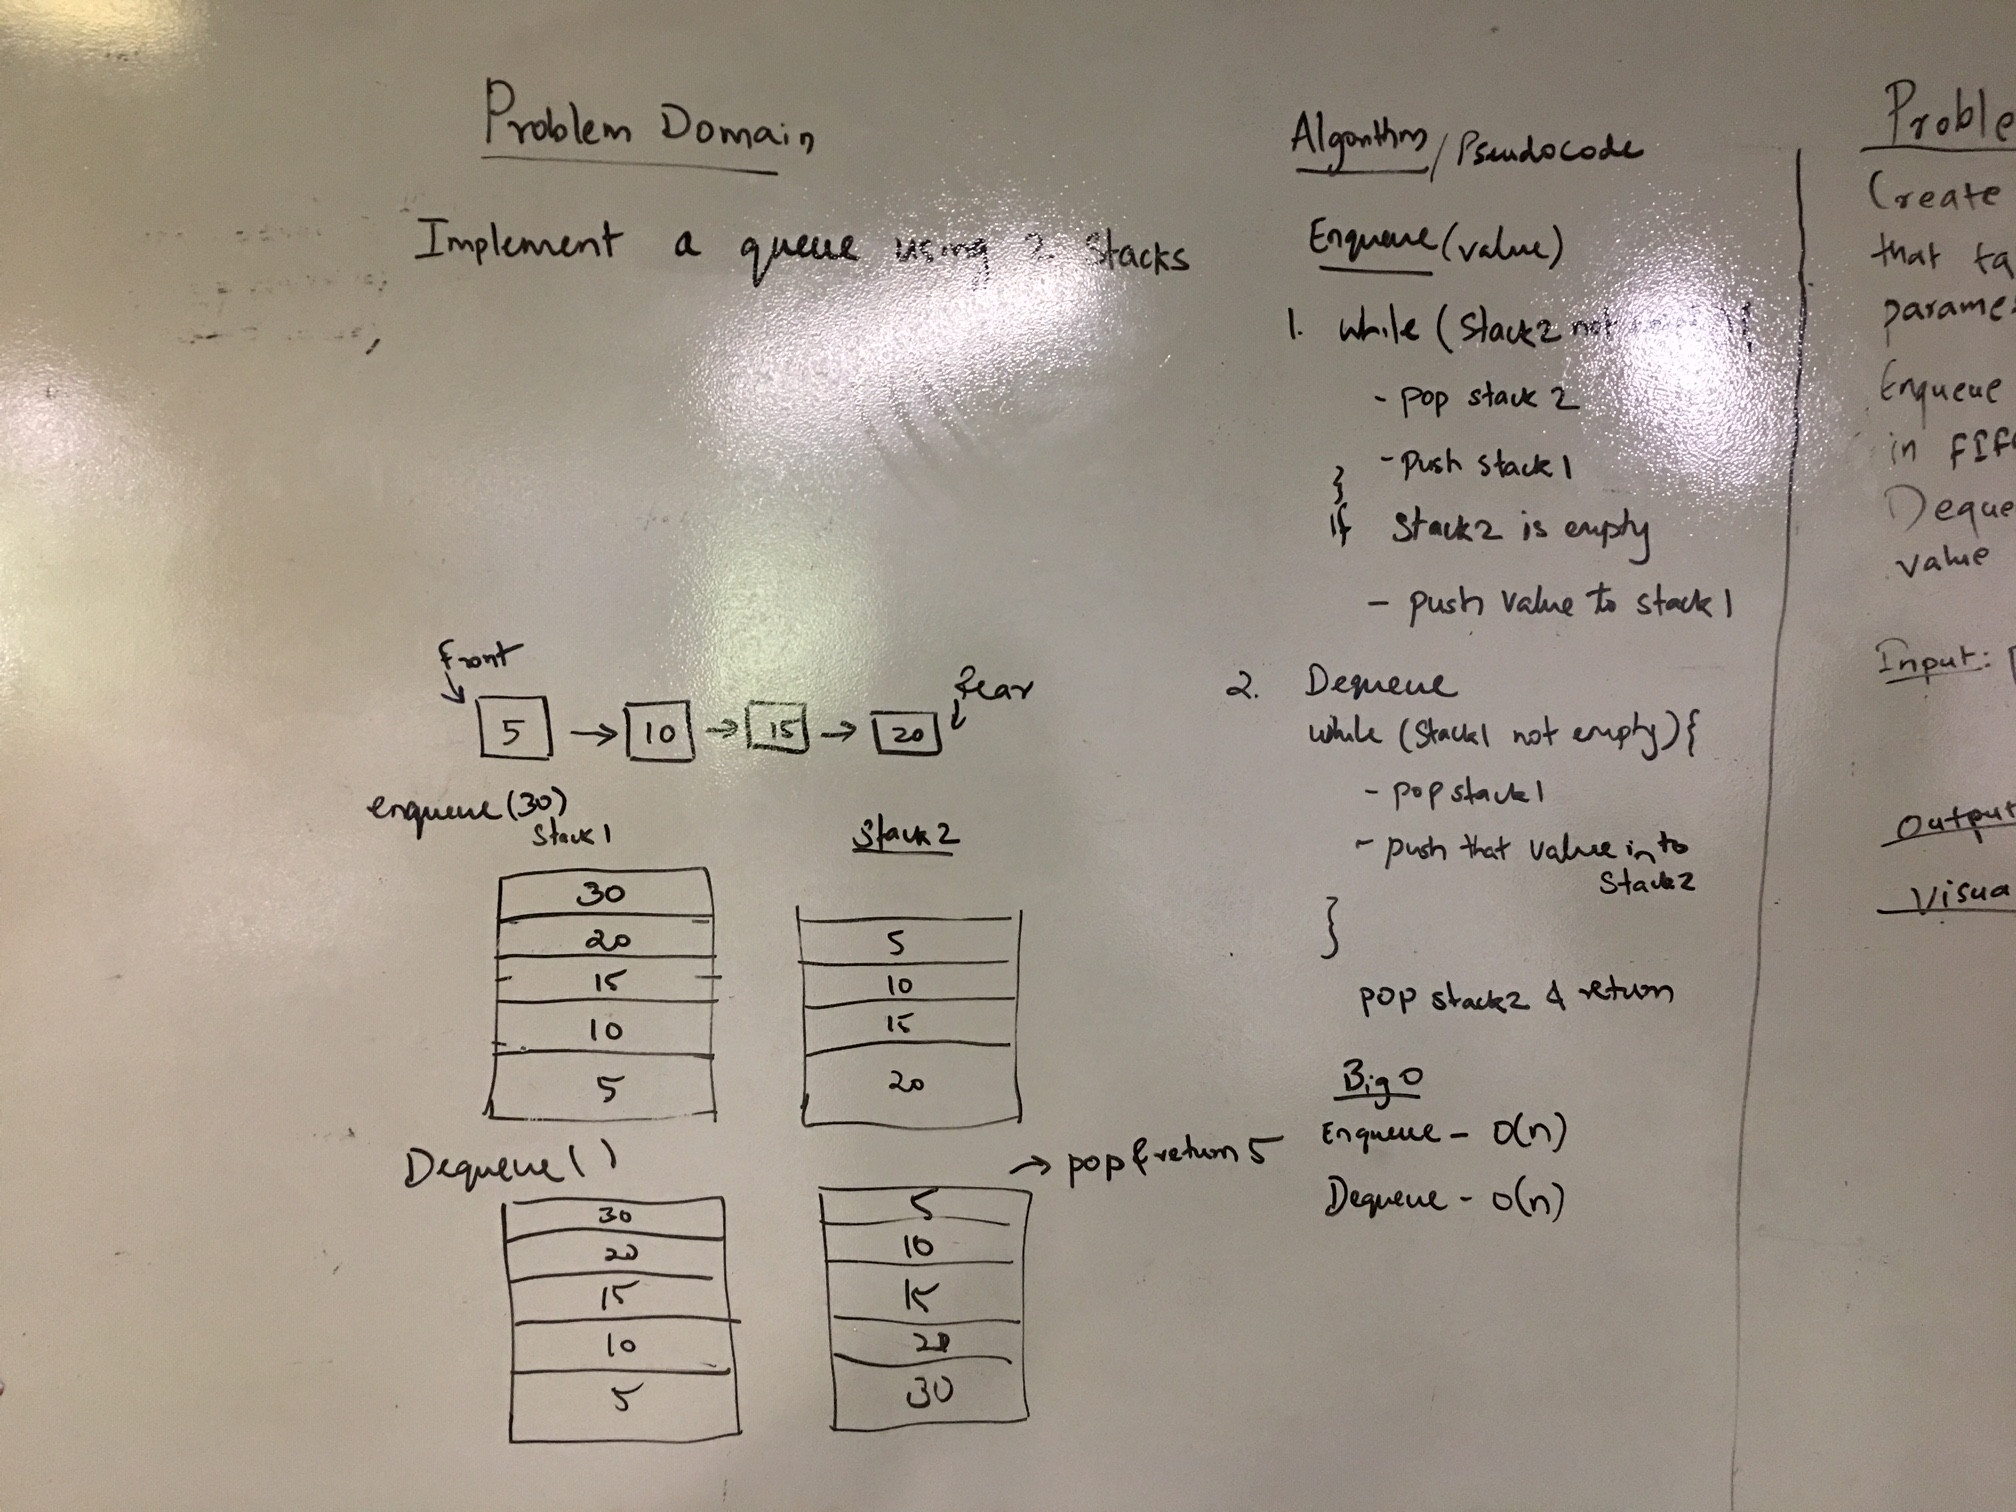 Problem Domain
Implement a queue using 2 Stacks
front
rear
5 → 10 → 15 → 20
enqueue(30)
Stack1
Stack2
30
20
15
10
5
5
10
15
20
Dequeue()
→ pop & return 5
30
20
15
10
5
5
10
15
20
30
Algorithm / Pseudocode
Enqueue(value)
1. while (Stack2 not {
- pop stack 2
- push stack1
}
if Stack2 is empty
- push value to stack1
2. Dequeue
while (Stack1 not empty){
- pop stack1
- push that value into
Stack2
}
pop stack2 & return
Big O
Enqueue - O(n)
Dequeue - O(n)
Proble
Create
that ta
parame
Enqueue
in FIF
Deque
value
Input: [
Output
Visua